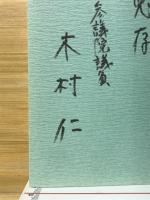 恵存
参議院議員
木村仁